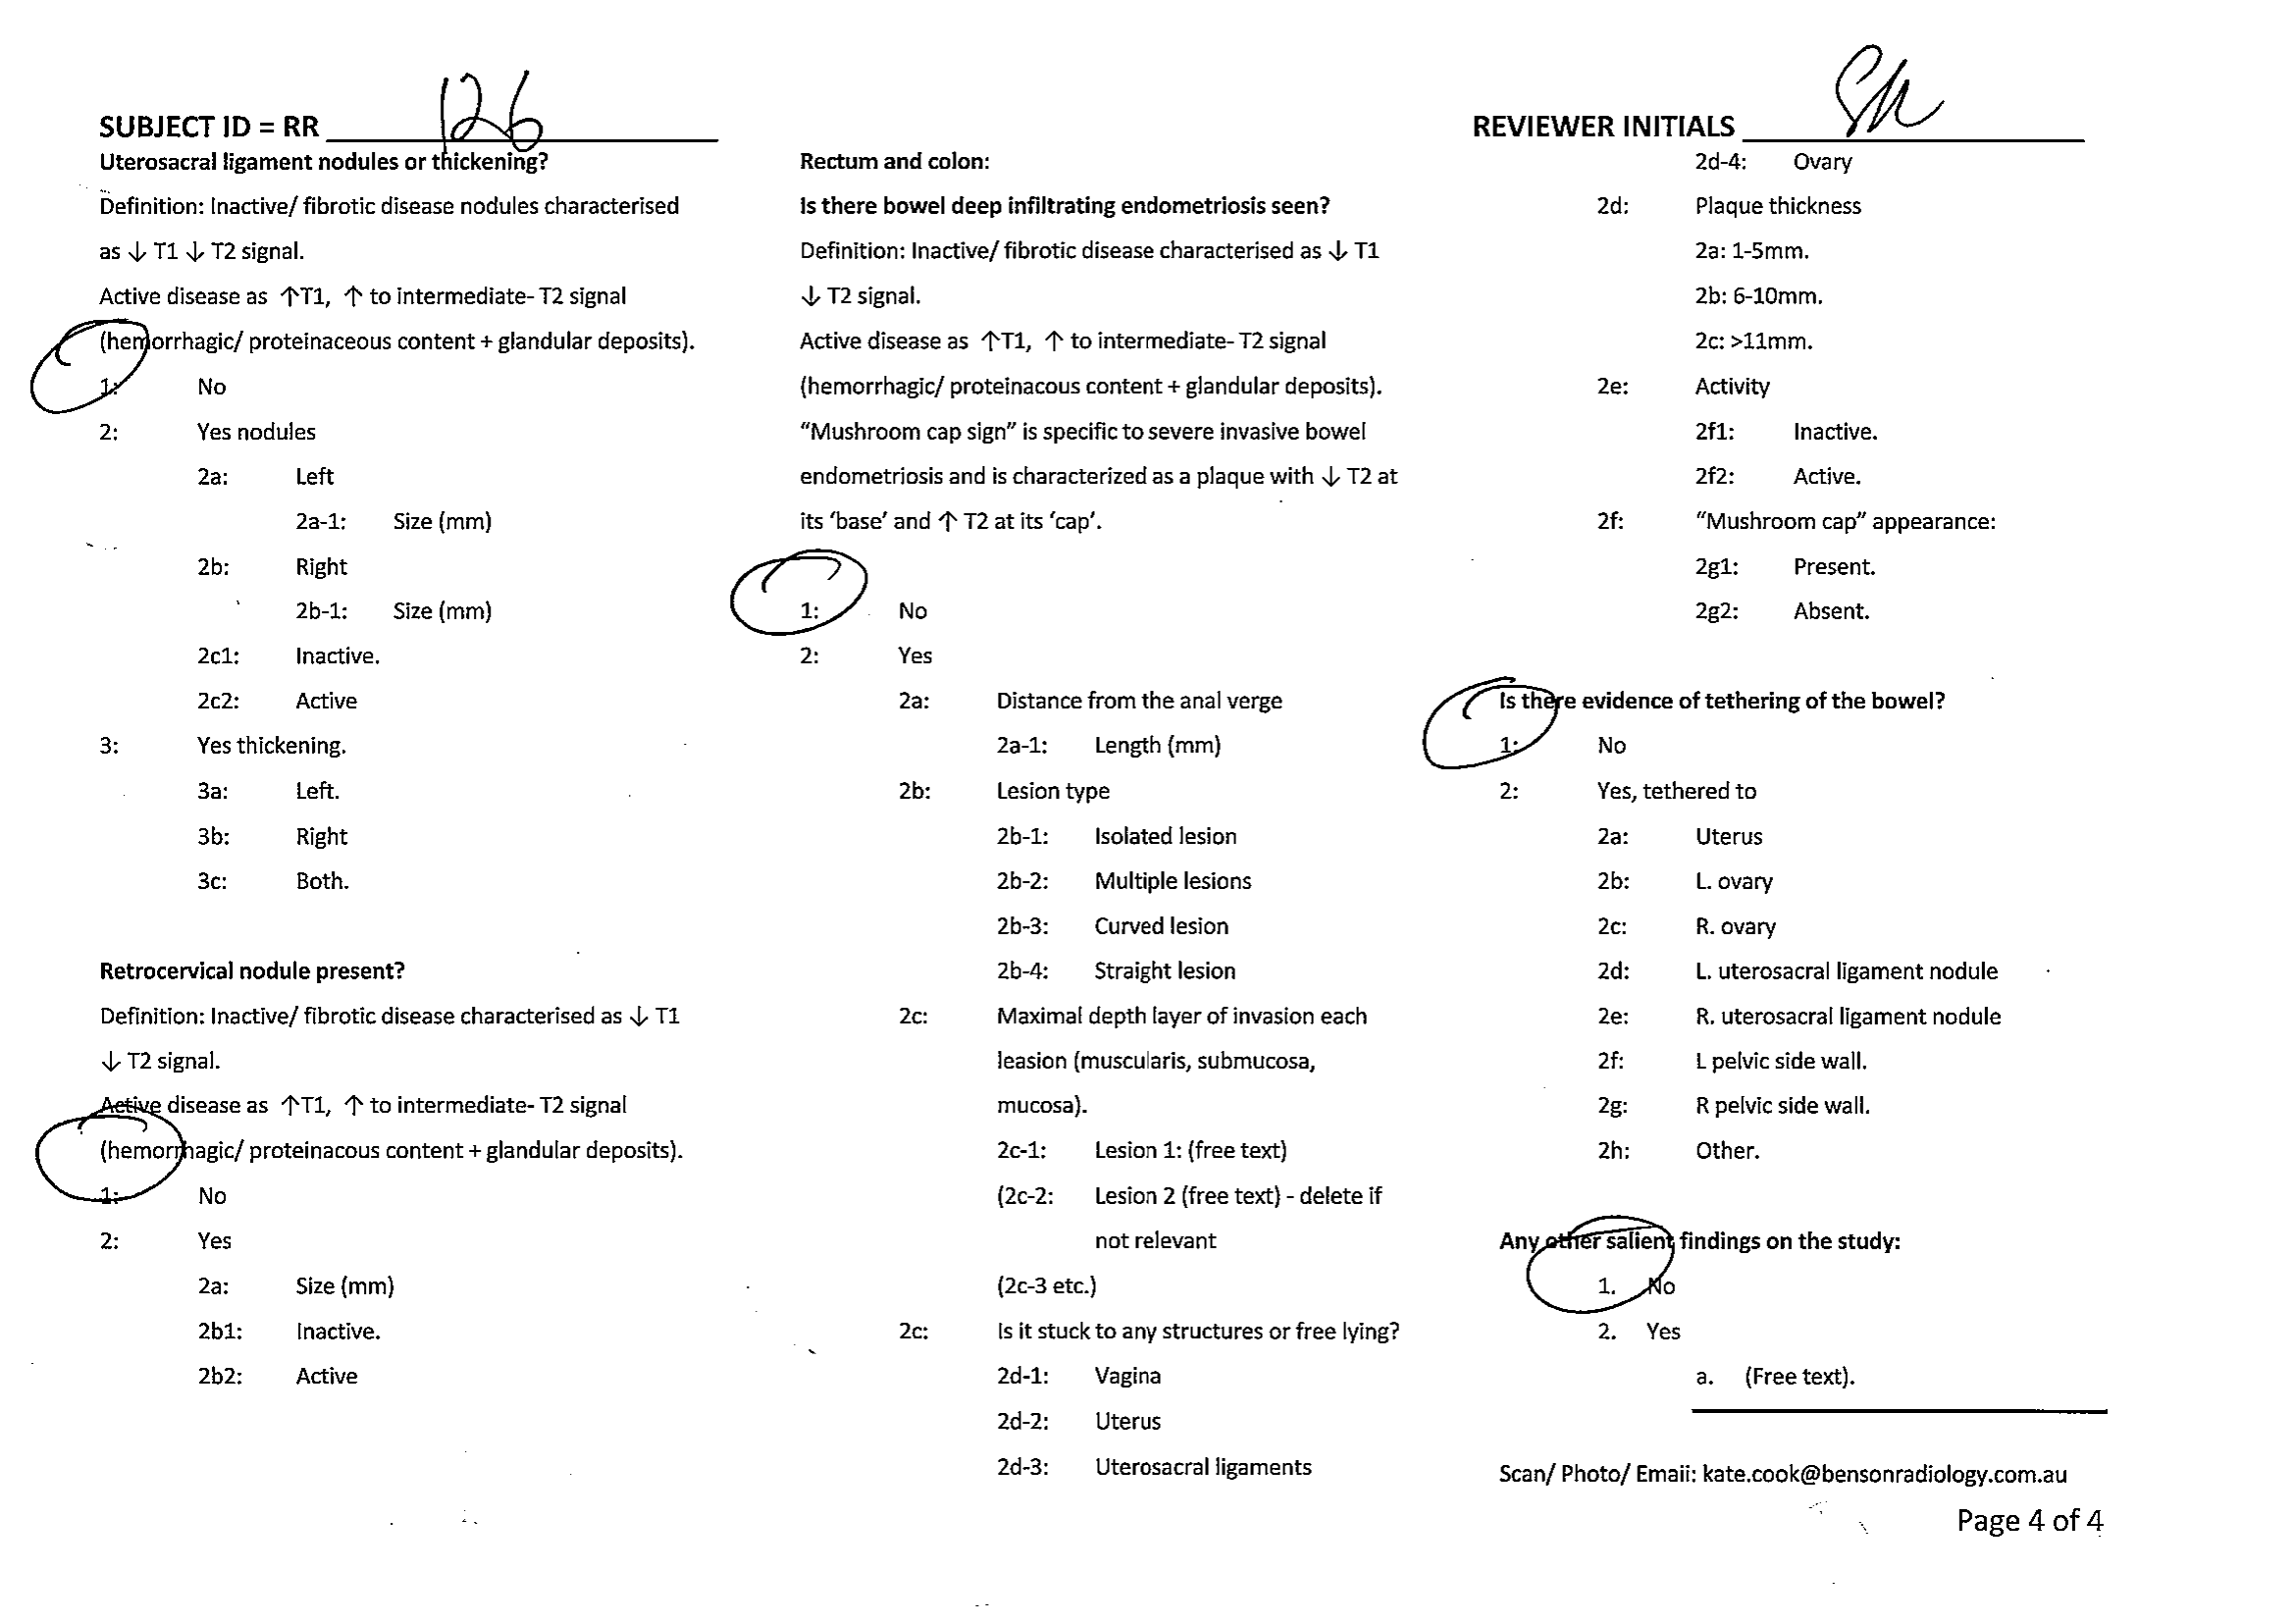 SUBJECT ID = RR 126
REVIEWER INITIALS
Uterosacral ligament nodules or thickening?
Definition: Inactive/ fibrotic disease nodules characterised
as ↓ T1 ↓ T2 signal.
Active disease as ↑T1, ↑ to intermediate- T2 signal
(hemorrhagic/ proteinaceous content + glandular deposits).
1: No
2: Yes nodules
2a: Left
2a-1: Size (mm)
2b: Right
2b-1: Size (mm)
2c1: Inactive.
2c2: Active
3: Yes thickening.
3a: Left.
3b: Right
3c: Both.
Retrocervical nodule present?
Definition: Inactive/ fibrotic disease characterised as ↓ T1
↓ T2 signal.
Active disease as ↑T1, ↑ to intermediate- T2 signal
(hemorrhagic/ proteinacous content + glandular deposits).
1: No
2: Yes
2a: Size (mm)
2b1: Inactive.
2b2: Active
Rectum and colon:
Is there bowel deep infiltrating endometriosis seen?
Definition: Inactive/ fibrotic disease characterised as ↓ T1
↓ T2 signal.
Active disease as ↑T1, ↑ to intermediate- T2 signal
(hemorrhagic/ proteinacous content + glandular deposits).
“Mushroom cap sign” is specific to severe invasive bowel
endometriosis and is characterized as a plaque with ↓ T2 at
its ‘base’ and ↑ T2 at its ‘cap’.
1: No
2: Yes
2a: Distance from the anal verge
2a-1: Length (mm)
2b: Lesion type
2b-1: Isolated lesion
2b-2: Multiple lesions
2b-3: Curved lesion
2b-4: Straight lesion
2c: Maximal depth layer of invasion each
leasion (muscularis, submucosa,
mucosa).
2c-1: Lesion 1: (free text)
(2c-2: Lesion 2 (free text) - delete if
not relevant
(2c-3 etc.)
2c: Is it stuck to any structures or free lying?
2d-1: Vagina
2d-2: Uterus
2d-3: Uterosacral ligaments
2d-4: Ovary
2d: Plaque thickness
2a: 1-5mm.
2b: 6-10mm.
2c: >11mm.
2e: Activity
2f1: Inactive.
2f2: Active.
2f: “Mushroom cap” appearance:
2g1: Present.
2g2: Absent.
Is there evidence of tethering of the bowel?
1: No
2: Yes, tethered to
2a: Uterus
2b: L. ovary
2c: R. ovary
2d: L. uterosacral ligament nodule
2e: R. uterosacral ligament nodule
2f: L pelvic side wall.
2g: R pelvic side wall.
2h: Other.
Any other salient findings on the study:
1. No
2. Yes
a. (Free text).
Scan/ Photo/ Email: kate.cook@bensonradiology.com.au
Page 4 of 4